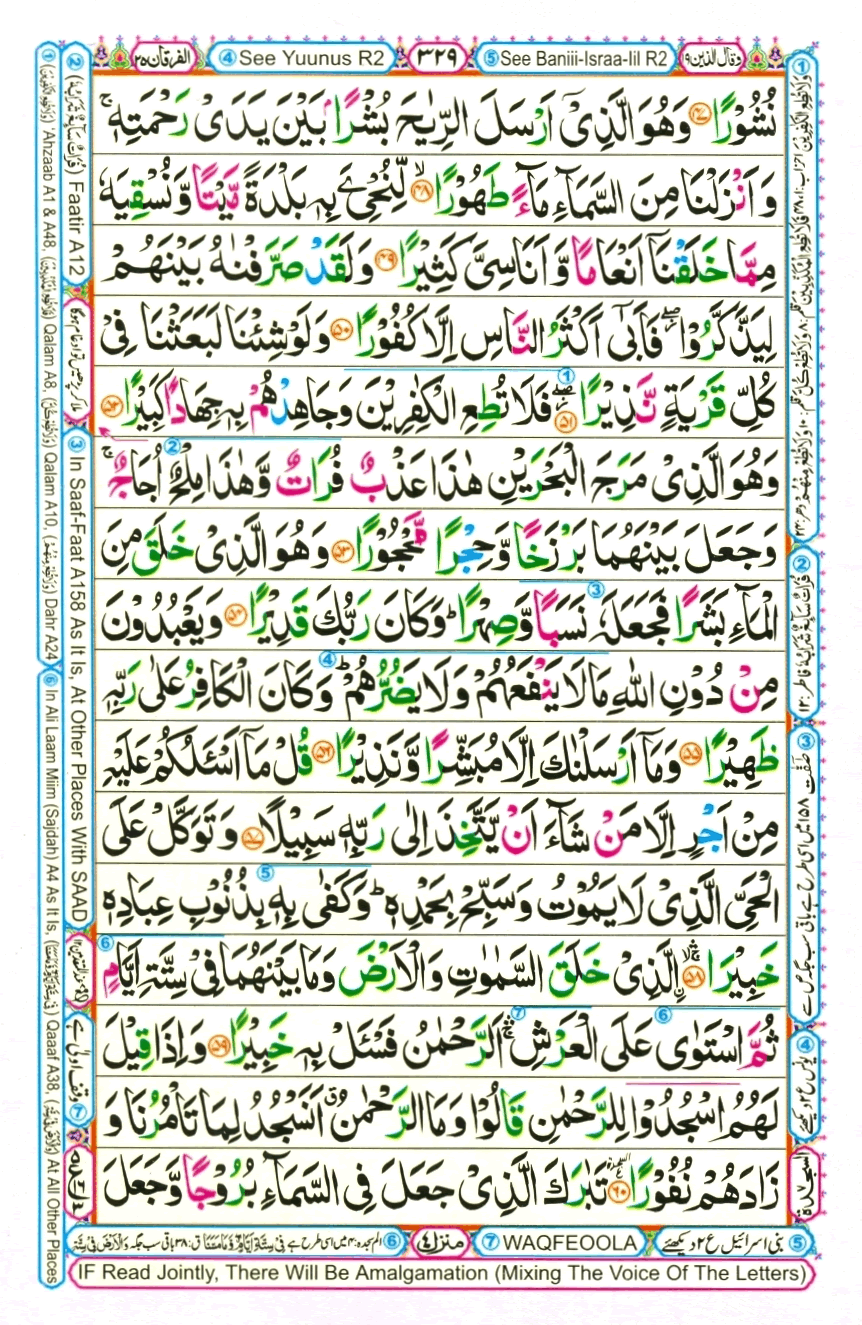 الفرقان ٢٥
④ See Yuunus R2
٣٢٩
⑤ See Baniii-Israa-Iil R2
وقال الذين ١٩
نُشُوْرًا ﴿۴۷﴾ وَهُوَ الَّذِیْۤ اَرْسَلَ الرِّیٰحَ بُشْرًۢا بَیْنَ یَدَیْ رَحْمَتِهٖ ۚ
وَ اَنْزَلْنَا مِنَ السَّمَآءِ مَآءً طَهُوْرًا ﴿۴۸﴾ۙ لِّنُحْیِۦَ بِهٖ بَلْدَةً مَّیْتًا وَّ نُسْقِیَهٗ
مِمَّا خَلَقْنَاۤ اَنْعَامًا وَّ اَنَاسِیَّ كَثِیْرًا ﴿۴۹﴾ وَ لَقَدْ صَرَّفْنٰهُ بَیْنَهُمْ
لِیَذَّكَّرُوْا ۖؗ فَاَبٰۤی اَكْثَرُ النَّاسِ اِلَّا كُفُوْرًا ﴿۵۰﴾ وَ لَوْ شِئْنَا لَبَعَثْنَا فِیْ
كُلِّ قَرْیَةٍ نَّذِیْرًا ﴿۵۱﴾ۖؗ فَلَا تُطِعِ الْكٰفِرِیْنَ وَ جَاهِدْهُمْ بِهٖ جِهَادًا كَبِیْرًا ﴿۵۲﴾
وَهُوَ الَّذِیْ مَرَجَ الْبَحْرَیْنِ هٰذَا عَذْبٌ فُرَاتٌ وَّ هٰذَا مِلْحٌ اُجَاجٌ ۚ
وَ جَعَلَ بَیْنَهُمَا بَرْزَخًا وَّ حِجْرًا مَّحْجُوْرًا ﴿۵۳﴾ وَ هُوَ الَّذِیْ خَلَقَ مِنَ
الْمَآءِ بَشَرًا فَجَعَلَهٗ نَسَبًا وَّ صِهْرًا ؕ وَ كَانَ رَبُّكَ قَدِیْرًا ﴿۵۴﴾ وَ یَعْبُدُوْنَ
مِنْ دُوْنِ اللّٰهِ مَا لَا یَنْفَعُهُمْ وَ لَا یَضُرُّهُمْ ؕ وَ كَانَ الْكَافِرُ عَلٰی رَبِّهٖ
ظَهِیْرًا ﴿۵۵﴾ وَ مَاۤ اَرْسَلْنٰكَ اِلَّا مُبَشِّرًا وَّ نَذِیْرًا ﴿۵۶﴾ قُلْ مَاۤ اَسْـَٔلُكُمْ عَلَیْهِ
مِنْ اَجْرٍ اِلَّا مَنْ شَآءَ اَنْ یَّتَّخِذَ اِلٰی رَبِّهٖ سَبِیْلًا ﴿۵۷﴾ وَ تَوَكَّلْ عَلَی
الْحَیِّ الَّذِیْ لَا یَمُوْتُ وَ سَبِّحْ بِحَمْدِهٖ ؕ وَ كَفٰی بِهٖ بِذُنُوْبِ عِبَادِهٖ
خَبِیْرَا ﴿۵۸﴾ۚۛۙ اِ۟لَّذِیْ خَلَقَ السَّمٰوٰتِ وَ الْاَرْضَ وَ مَا بَیْنَهُمَا فِیْ سِتَّةِ اَیَّامٍ
ثُمَّ اسْتَوٰی عَلَی الْعَرْشِ ۚۛ اَلرَّحْمٰنُ فَسْـَٔلْ بِهٖ خَبِیْرًا ﴿۵۹﴾ وَ اِذَا قِیْلَ
لَهُمُ اسْجُدُوْا لِلرَّحْمٰنِ قَالُوْا وَ مَا الرَّحْمٰنُ ۗ اَنَسْجُدُ لِمَا تَاْمُرُنَا وَ
زَادَهُمْ نُفُوْرًا ﴿۶۰﴾ تَبٰرَكَ الَّذِیْ جَعَلَ فِی السَّمَآءِ بُرُوْجًا وَّ جَعَلَ
السجدة
② Faatir A12
③ In Saaf-Faat A158 As It Is, At Other Places With SAAD
① 'Ahzaab A1 & A48, Qalam A8, Qalam A10, Dahr A24
⑥ In Ali Laam Miim (Sajdah) A4 As It Is, Qaaaf A38, At All Other Places
⑤ بنی اسرائیل ع ۲ دیکھئے
⑦ WAQFEOOLA
منزل ٤
IF Read Jointly, There Will Be Amalgamation (Mixing The Voice Of The Letters)